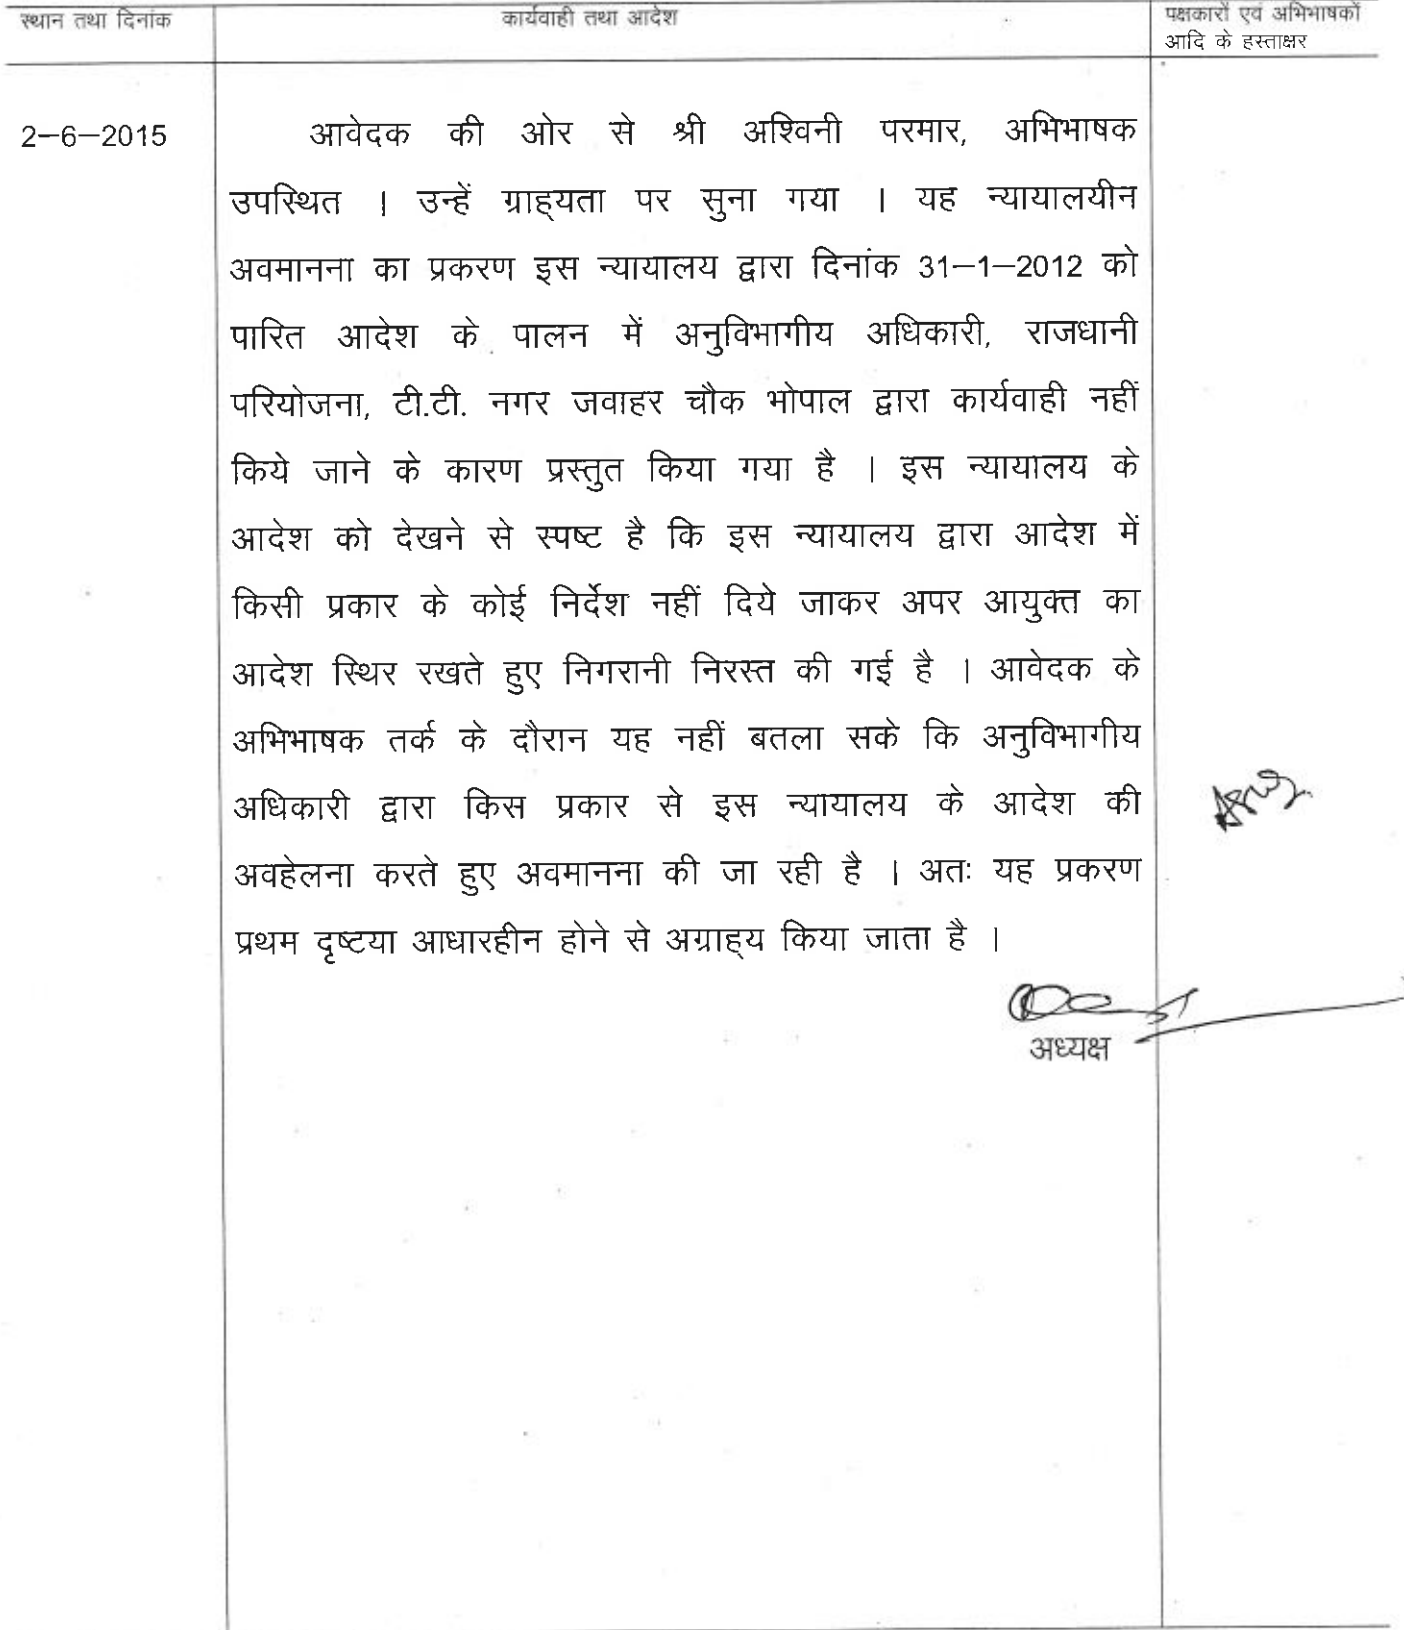 स्थान तथा दिनांक
कार्यवाही तथा आदेश
पक्षकारों एवं अभिभाषकों
आदि के हस्ताक्षर
2–6–2015
आवेदक की ओर से श्री अश्विनी परमार, अभिभाषक
उपस्थित । उन्हें ग्राह्यता पर सुना गया । यह न्यायालयीन
अवमानना का प्रकरण इस न्यायालय द्वारा दिनांक 31–1–2012 को
पारित आदेश के पालन में अनुविभागीय अधिकारी, राजधानी
परियोजना, टी.टी. नगर जवाहर चौक भोपाल द्वारा कार्यवाही नहीं
किये जाने के कारण प्रस्तुत किया गया है । इस न्यायालय के
आदेश को देखने से स्पष्ट है कि इस न्यायालय द्वारा आदेश में
किसी प्रकार के कोई निर्देश नहीं दिये जाकर अपर आयुक्त का
आदेश स्थिर रखते हुए निगरानी निरस्त की गई है । आवेदक के
अभिभाषक तर्क के दौरान यह नहीं बतला सके कि अनुविभागीय
अधिकारी द्वारा किस प्रकार से इस न्यायालय के आदेश की
अवहेलना करते हुए अवमानना की जा रही है । अतः यह प्रकरण
प्रथम दृष्टया आधारहीन होने से अग्राह्य किया जाता है ।
अध्यक्ष